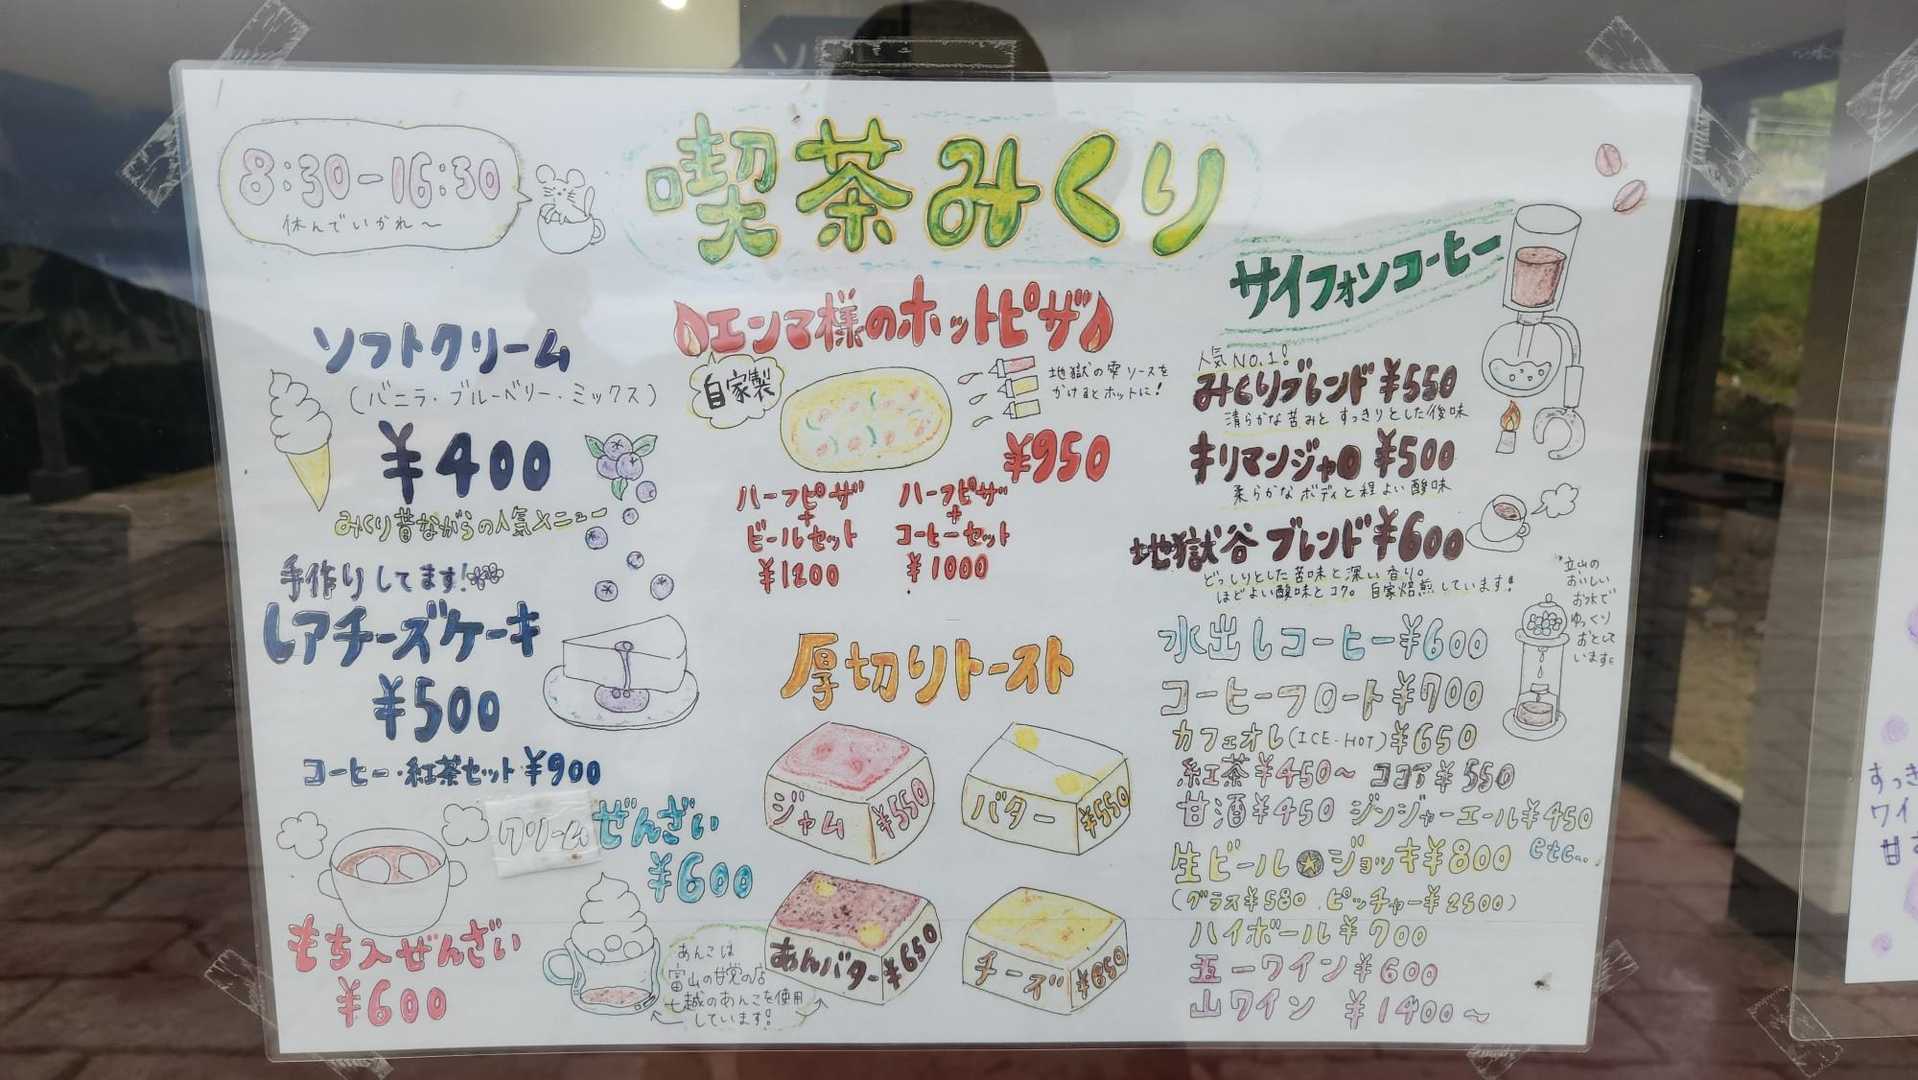 8:30-16:30
休んでいかれ〜
喫茶みくり
ソフトクリーム
(バニラ・ブルーベリー・ミックス)
¥400
みくり昔ながらの人気メニュー
手作りしてます!
レアチーズケーキ
¥500
コーヒー・紅茶セット ¥900
もち入ぜんざい
¥600
クリームぜんざい
¥600
あんこは
富山の甘党の店
七越のあんこを使用
しています!
エンマ様のホットピザ
自家製
地獄の雫ソースを
かけるとホットに!
¥950
ハーフピザ
+
ビールセット
¥1200
ハーフピザ
+
コーヒーセット
¥1000
厚切りトースト
ジャム ¥550
バター ¥550
あんバター ¥650
チーズ ¥650
サイフォンコーヒー
人気NO.1!
みくりブレンド ¥550
清らかな苦みと すっきりとした後味
キリマンジャロ ¥500
柔らかなボディと程よい酸味
地獄谷ブレンド ¥600
どっしりとした苦味と深い香り。
ほどよい酸味とコク。自家焙煎しています!
水出しコーヒー ¥600
立山の
おいしい
お水で
ゆっくり
おとして
います。
コーヒーフロート ¥700
カフェオレ(ICE・HOT) ¥650
紅茶 ¥450〜 ココア ¥550
甘酒 ¥450 ジンジャーエール ¥450
etc...
生ビール★ジョッキ ¥800
(グラス ¥580 ピッチャー ¥2500)
ハイボール ¥700
五一ワイン ¥600
山ワイン ¥1400〜
すっき
ワイ
甘